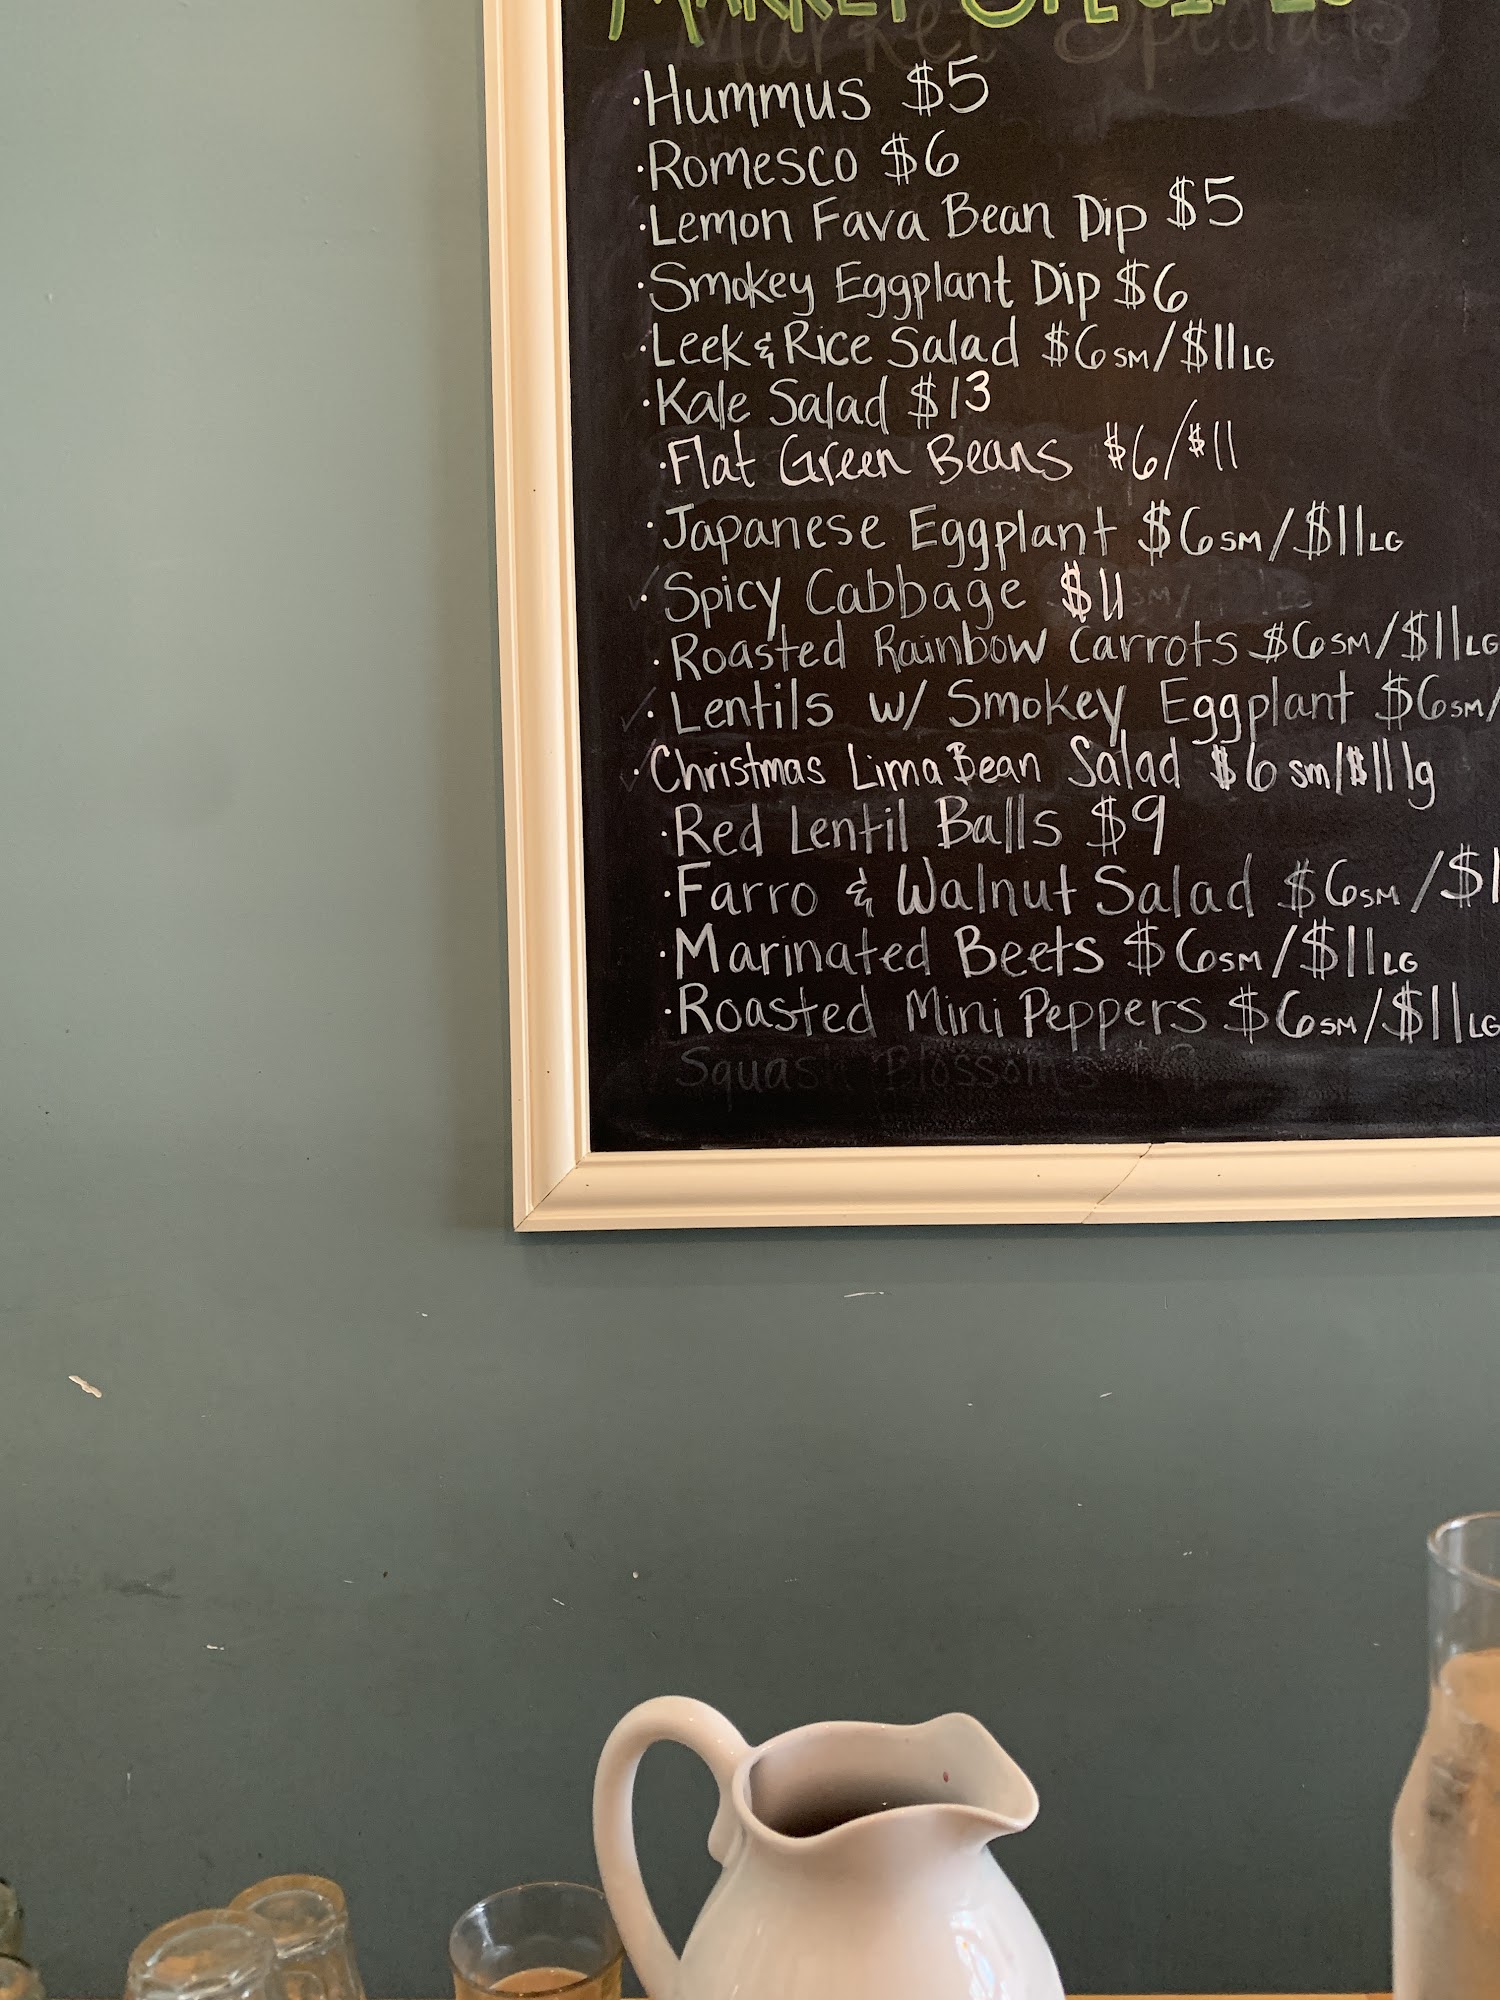 MARKET SPECIALS
Market Specials
·Hummus $5
·Romesco $6
·Lemon Fava Bean Dip $5
·Smokey Eggplant Dip $6
·Leek & Rice Salad $6 SM/$11 LG
·Kale Salad $13
·Flat Green Beans $6/$11
·Japanese Eggplant $6 SM/$11 LG
·Spicy Cabbage $11 SM/ LG
·Roasted Rainbow Carrots $6 SM/$11 LG
·Lentils w/ Smokey Eggplant $6 SM/
·Christmas Lima Bean Salad $6 sm/$11 lg
·Red Lentil Balls $9
·Farro & Walnut Salad $6 SM/$1
·Marinated Beets $6 SM/$11 LG
·Roasted Mini Peppers $6 SM/$11 LG
Squash Blossoms